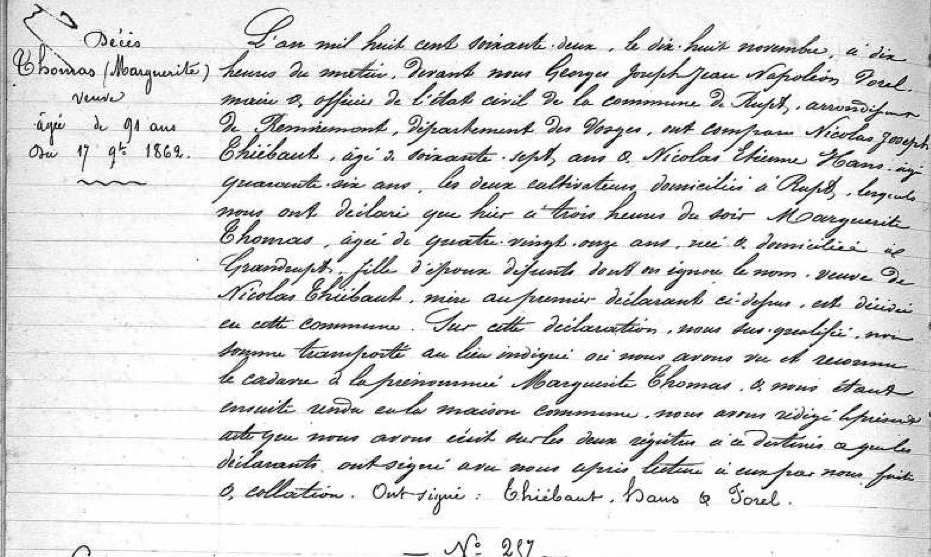 Décès
Thomas (Marguerite)
veuve
âgée de 91 ans
Du 17 9bre 1862.
L'an mil huit cent soixante-deux, le dix-huit novembre, à dix
heures du matin, devant nous Georges Joseph Jean Napoléon Forel
maire & officier de l'état civil de la commune de Rupt, arrondissement
de Remiremont, département des Vosges, ont comparu Nicolas Joseph
Thiébaut, âgé de soixante-sept ans & Nicolas Etienne Hans âgé
quarante-six ans, les deux cultivateurs domiciliés à Rupt, lesquels
nous ont déclaré que hier à trois heures du soir Marguerite
Thomas, âgée de quatre-vingt-onze ans, née & domiciliée à
Grandrupt, fille d'époux défunts dont on ignore le nom, veuve de
Nicolas Thiébaut, mère au premier déclarant ci-dessus, est décédée
en cette commune. Sur cette déclaration, nous sus-qualifié, nous
somme transporté au lieu indiqué où nous avons vu et reconnu
le cadavre de la prénommée Marguerite Thomas, & nous étant
ensuite rendu en la maison commune, nous avons rédigé le présent
acte que nous avons écrit sur les deux régistres à ce destinés & que les
déclarants ont signé avec nous après lecture à eux par nous faite
& collation. Ont signé : Thiébaut, Hans & Forel.
N° 217